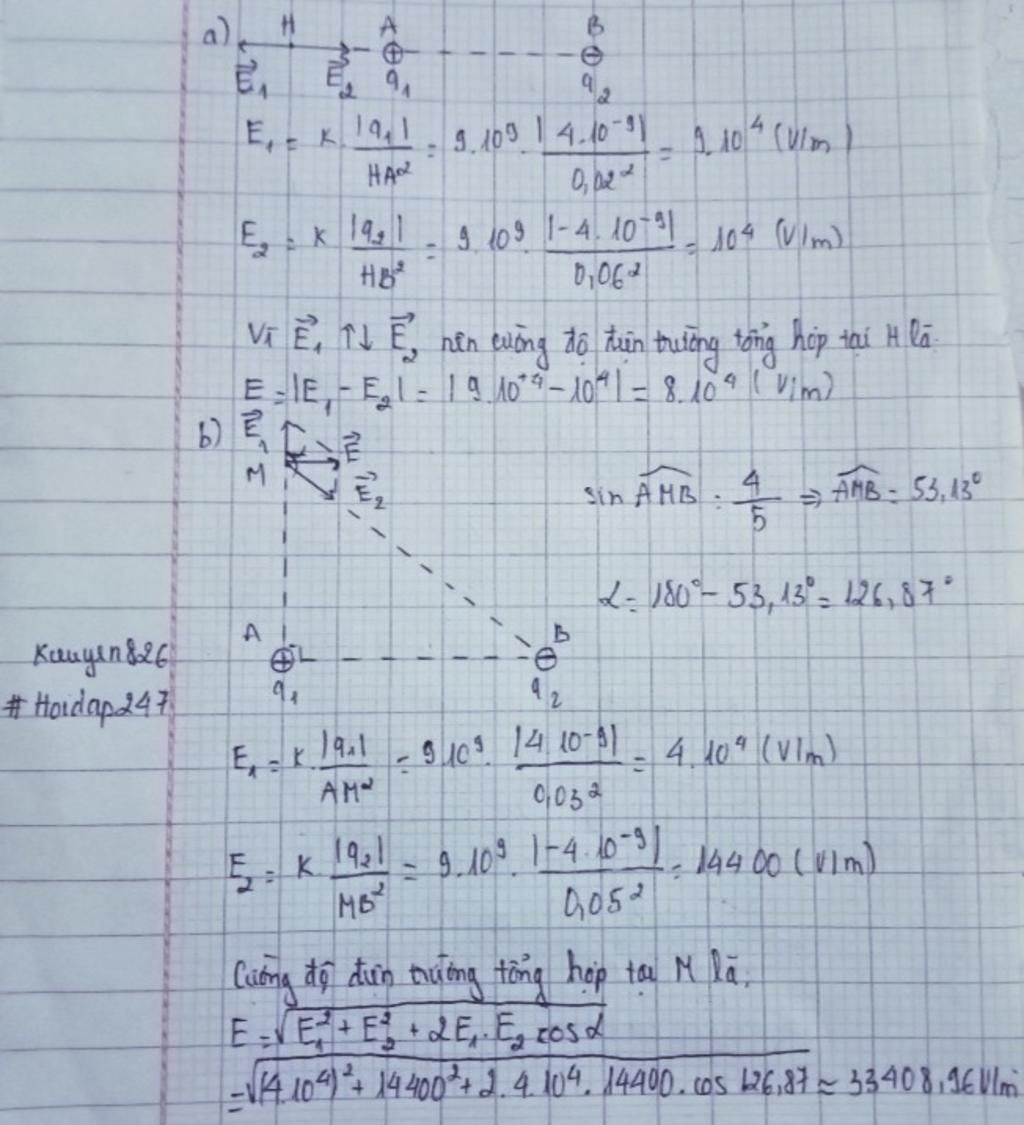 a) H A B
E⃗₁ E⃗₂ q₁ q₂
E₁ = K |q₁| / HA² = 9.10⁹. |4.10⁻⁹| / 0,02² = 9.10⁴ (V/m)
E₂ = K |q₂| / HB² = 9.10⁹. |-4.10⁻⁹| / 0,06² = 10⁴ (V/m)
Vì E⃗₁ ↑↓ E⃗₂ nên cường độ điện trường tổng hợp tại H là.
E = |E₁ - E₂| = |9.10⁺⁴ - 10⁴| = 8.10⁴ (V/m)
b) E⃗₁ E⃗
M E⃗₂
sin AMB = 4/5 ⇒ AMB = 53,13°
α = 180° - 53,13° = 126,87°
A B
q₁ q₂
Kauyen826
# Hoidap247
E₁ = K |q₁| / AM² = 9.10⁹. |4.10⁻⁹| / 0,03² = 4.10⁴ (V/m)
E₂ = K |q₂| / MB² = 9.10⁹. |-4.10⁻⁹| / 0,05² = 14400 (V/m)
Cường độ điện trường tổng hợp tại M là.
E = √(E₁² + E₂² + 2E₁.E₂ cosα)
= √((4.10⁴)² + 14400² + 2.4.10⁴.14400.cos 126,87) ≈ 33408,96 V/m